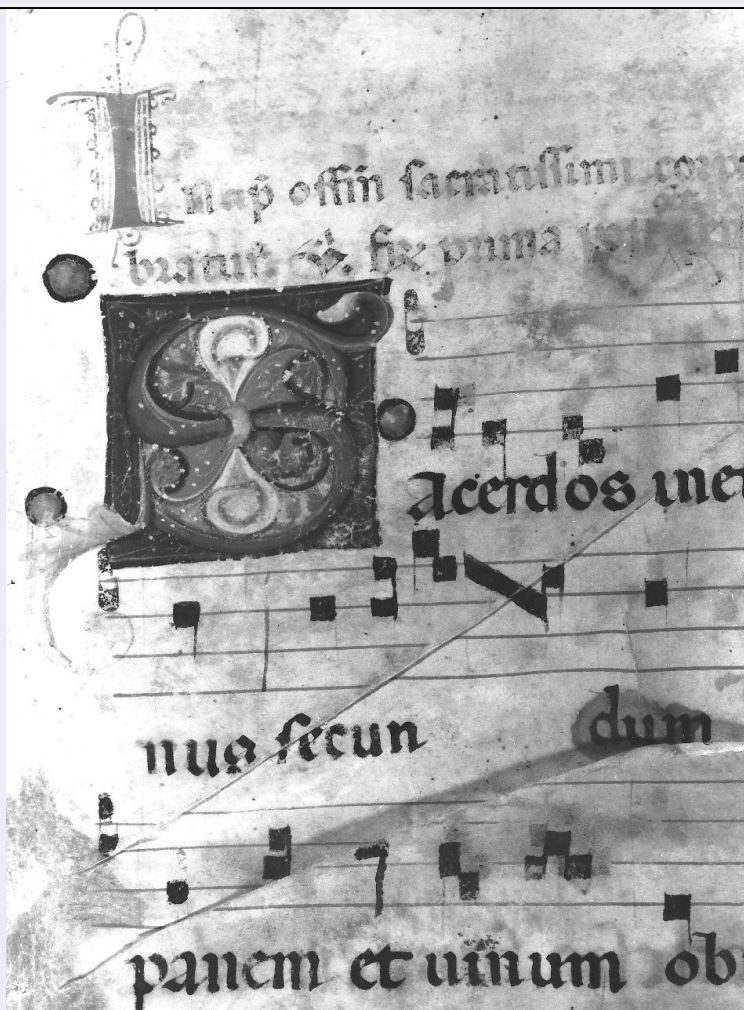 In ap̄ offiñ sacratissimi corp
bratus. fix prima
Sacerdos in et
nus secun dum
panem et uinum ob